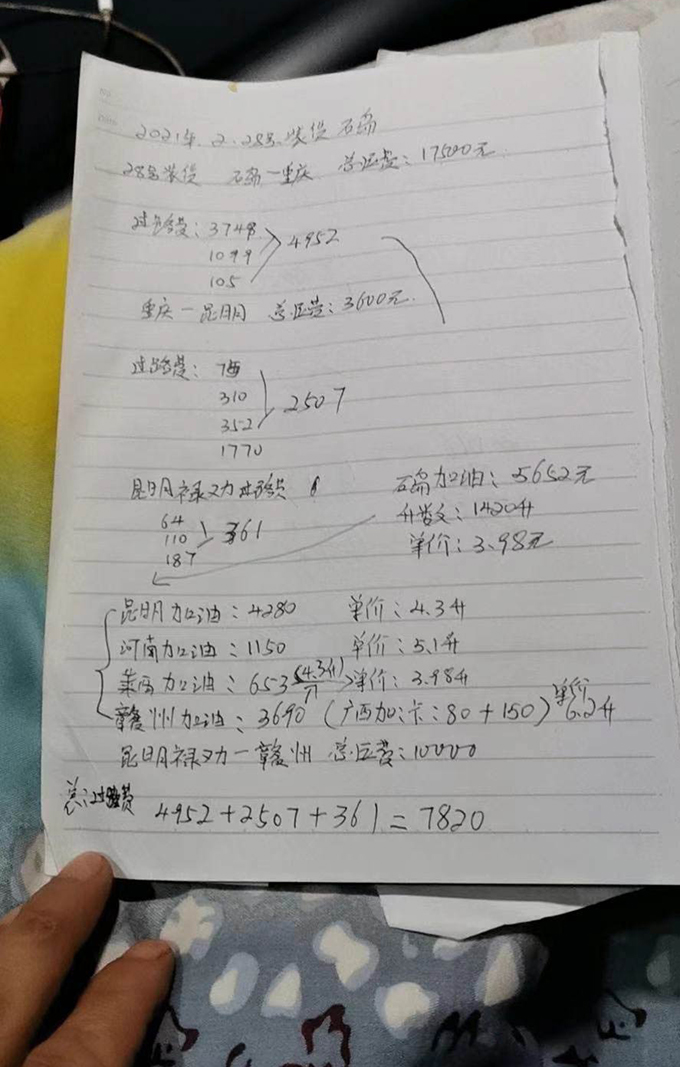 2021年.2.28号.装货 石岛
28号装货 石岛一重庆 总运费:17500元.
过路费:3748
1099
105
4952
重庆一昆明 总运费:3600元.
过路费:
310
352
1770
2507
昆明禄又力过路费
64
110
187
361
石岛加油:5652元
升数:1420升
单价:3.98元
昆明加油:4280 单价:4.3升
河南加油:1150 单价:5.1升
莱西加油:653 (4.3升) 单价:3.98升
赣州加油:3690 (广西加油卡:80+150) 单价6.2升
昆明禄又力一赣州 总运费:10000
总过路费 4952+2507+361=7820